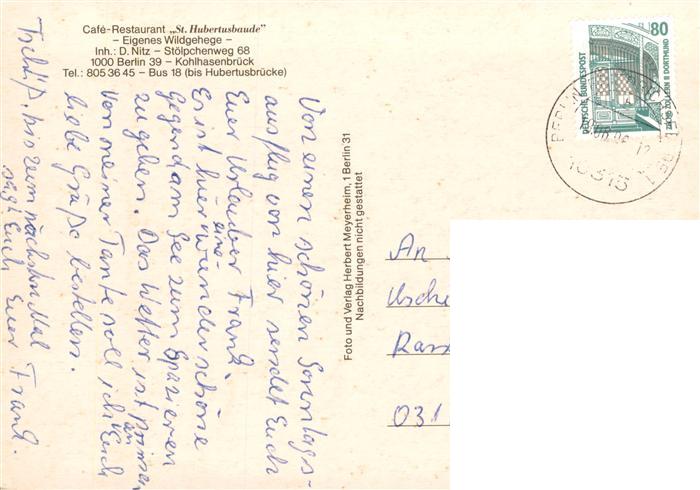 Café-Restaurant „St. Hubertusbaude"
– Eigenes Wildgehege –
Inh.: D. Nitz – Stölpchenweg 68
1000 Berlin 39 – Kohlhasenbrück
Tel.: 805 36 45 – Bus 18 (bis Hubertusbrücke)
Von einen schönen Sonntags-
ausflug von hier sendet Euch
Euer Urlauber Frank.
Es ist hier eine wunderschöne
Gegend am See zum Spazieren
zu gehen. Das Wetter ist prima
Von meiner Tante soll ich an Euch
liebe Grüße bestellen.
Tschüß, bis zum nächsten Mal
sagt Euch Euer Frank.
Foto und Verlag Herbert Meyerheim, 1 Berlin 31
Nachbildungen nicht gestattet
80
DEUTSCHE BUNDESPOST
ZECHE ZOLLERN II DORTMUND
BERLIN
10315
An
031